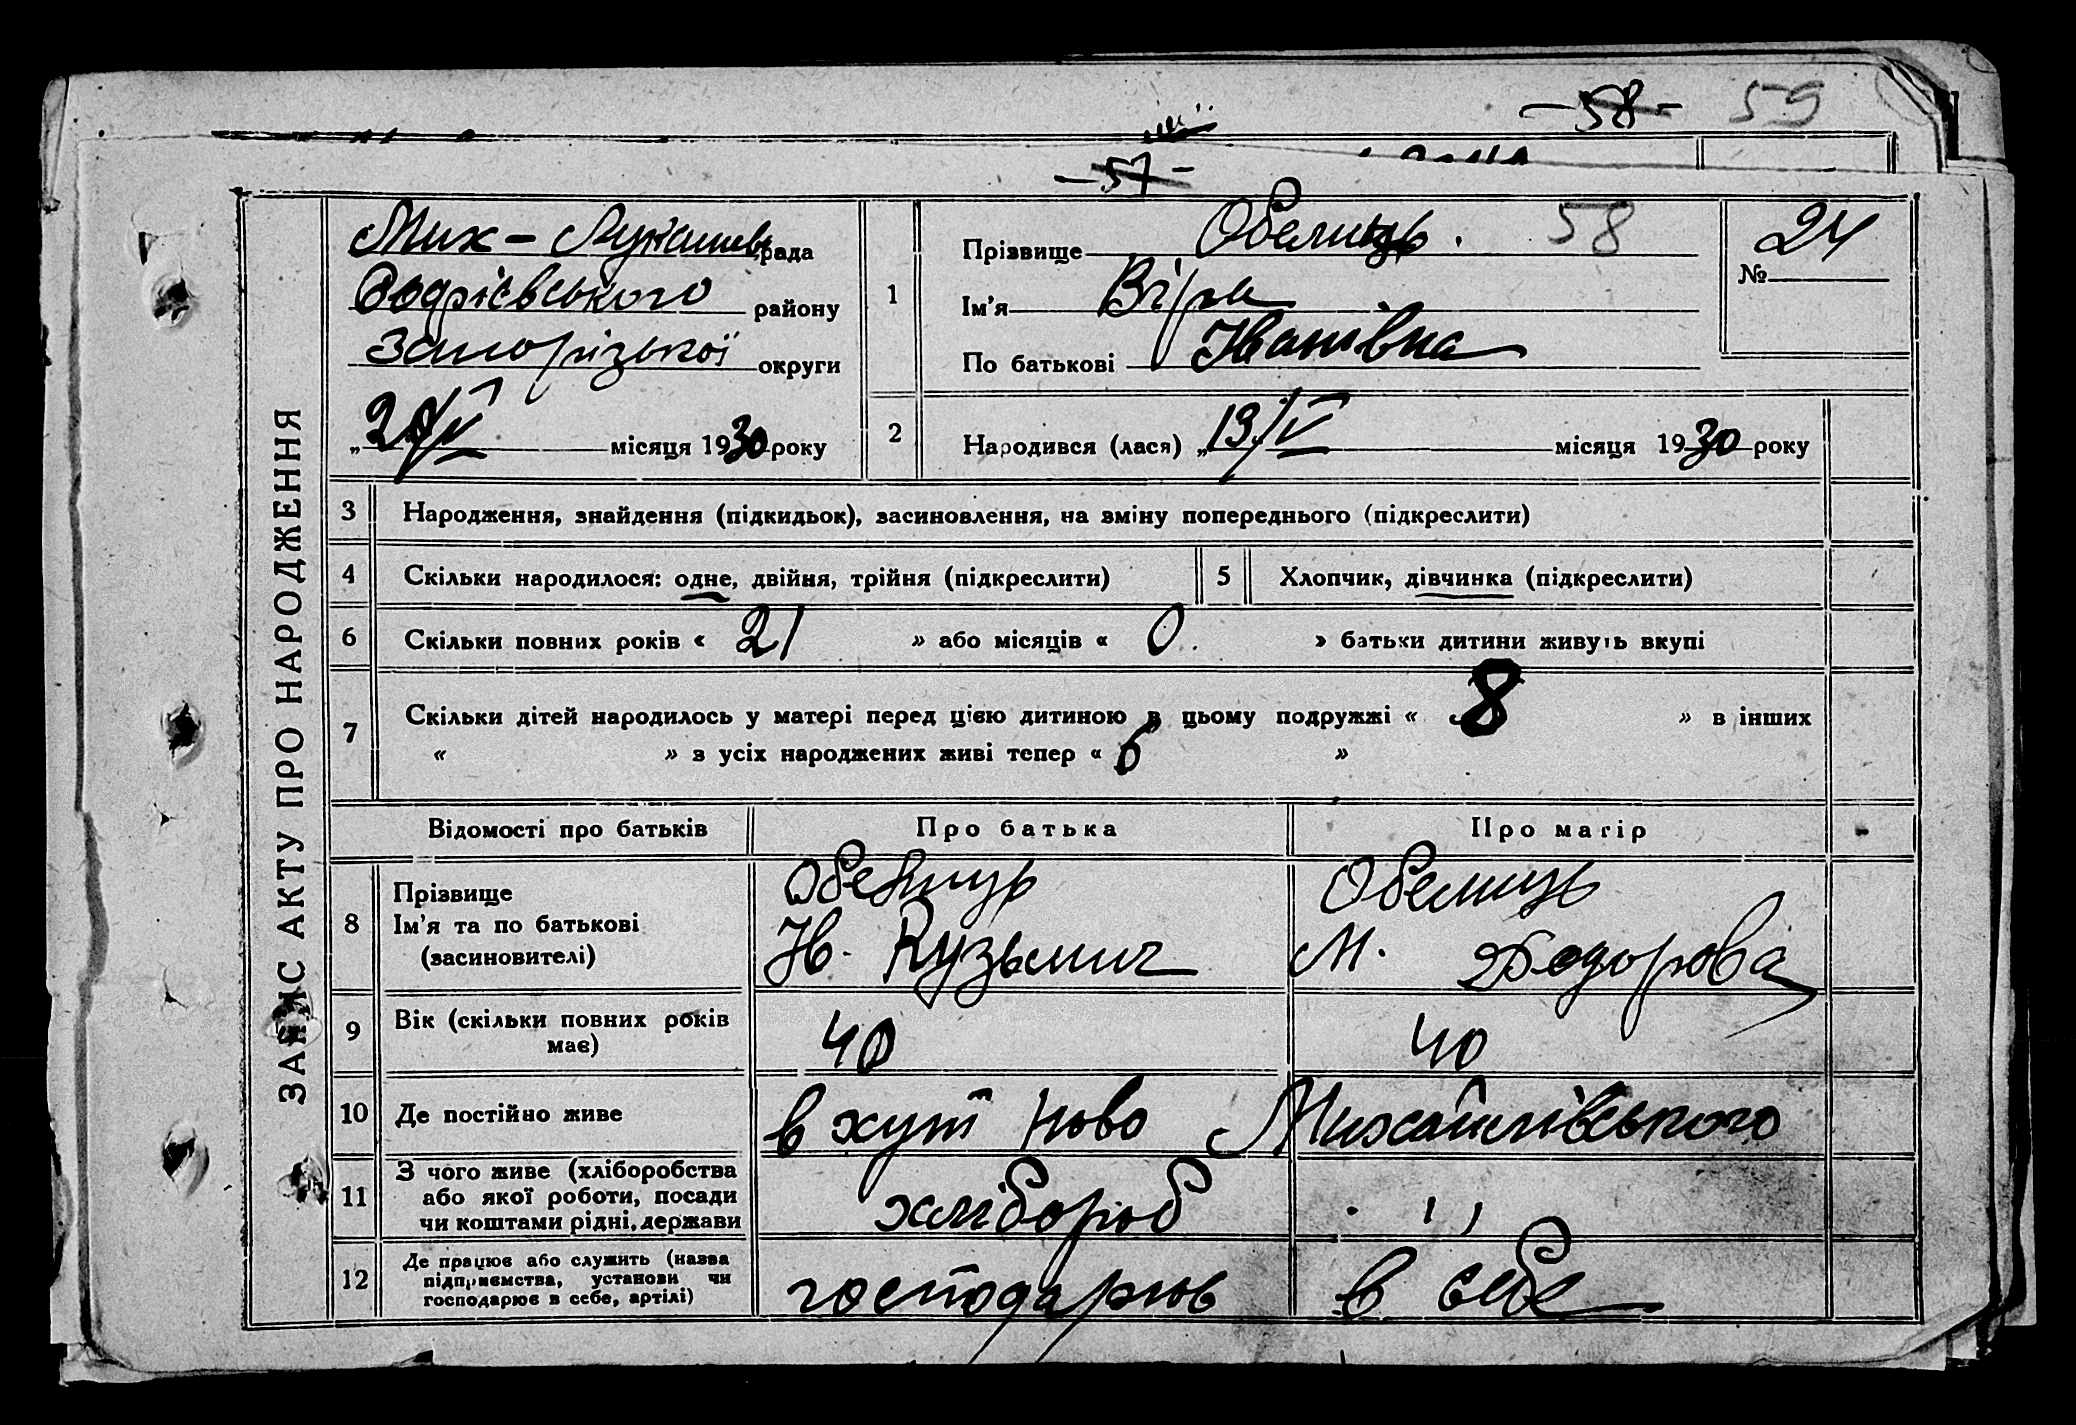 -58- 59
-57-
ЗАПИС АКТУ ПРО НАРОДЖЕННЯ
Мих - Лукашев рада
району
Запорізької округи
„ 20/V місяця 1930 року
1
Прізвище Обелець. 58
Ім'я Віра
По батькові Іванівна
№ 24
2
Народився (лася) „ 19/V місяця 1930 року
3 Народження, знайдення (підкидьок), засиновлення, на зміну попереднього (підкреслити)
4 Скільки народилося: одне, двійня, трійня (підкреслити)
5 Хлопчик, дівчинка (підкреслити)
6 Скільки повних років « 21 » або місяців « 0. » батьки дитини живуть вкупі
7 Скільки дітей народилось у матері перед цією дитиною в цьому подружжі « 8 » в інших
« » з усіх народжених живі тепер « 6 »
Відомості про батьків Про батька Про матір
8 Прізвище
Ім'я та по батькові
(засиновителі)
И. Кузьмич
М. Федорова
9 Вік (скільки повних років має) 40 40
10 Де постійно живе в хут Ново Михайлівського
11 З чого живе (хліборобства
або якої роботи, посади
чи коштами рідні, держави
хлібороб
''
12 Де працює або служить (назва
підприємства, установи чи
господарює в себе, артілі)
господарює в себе